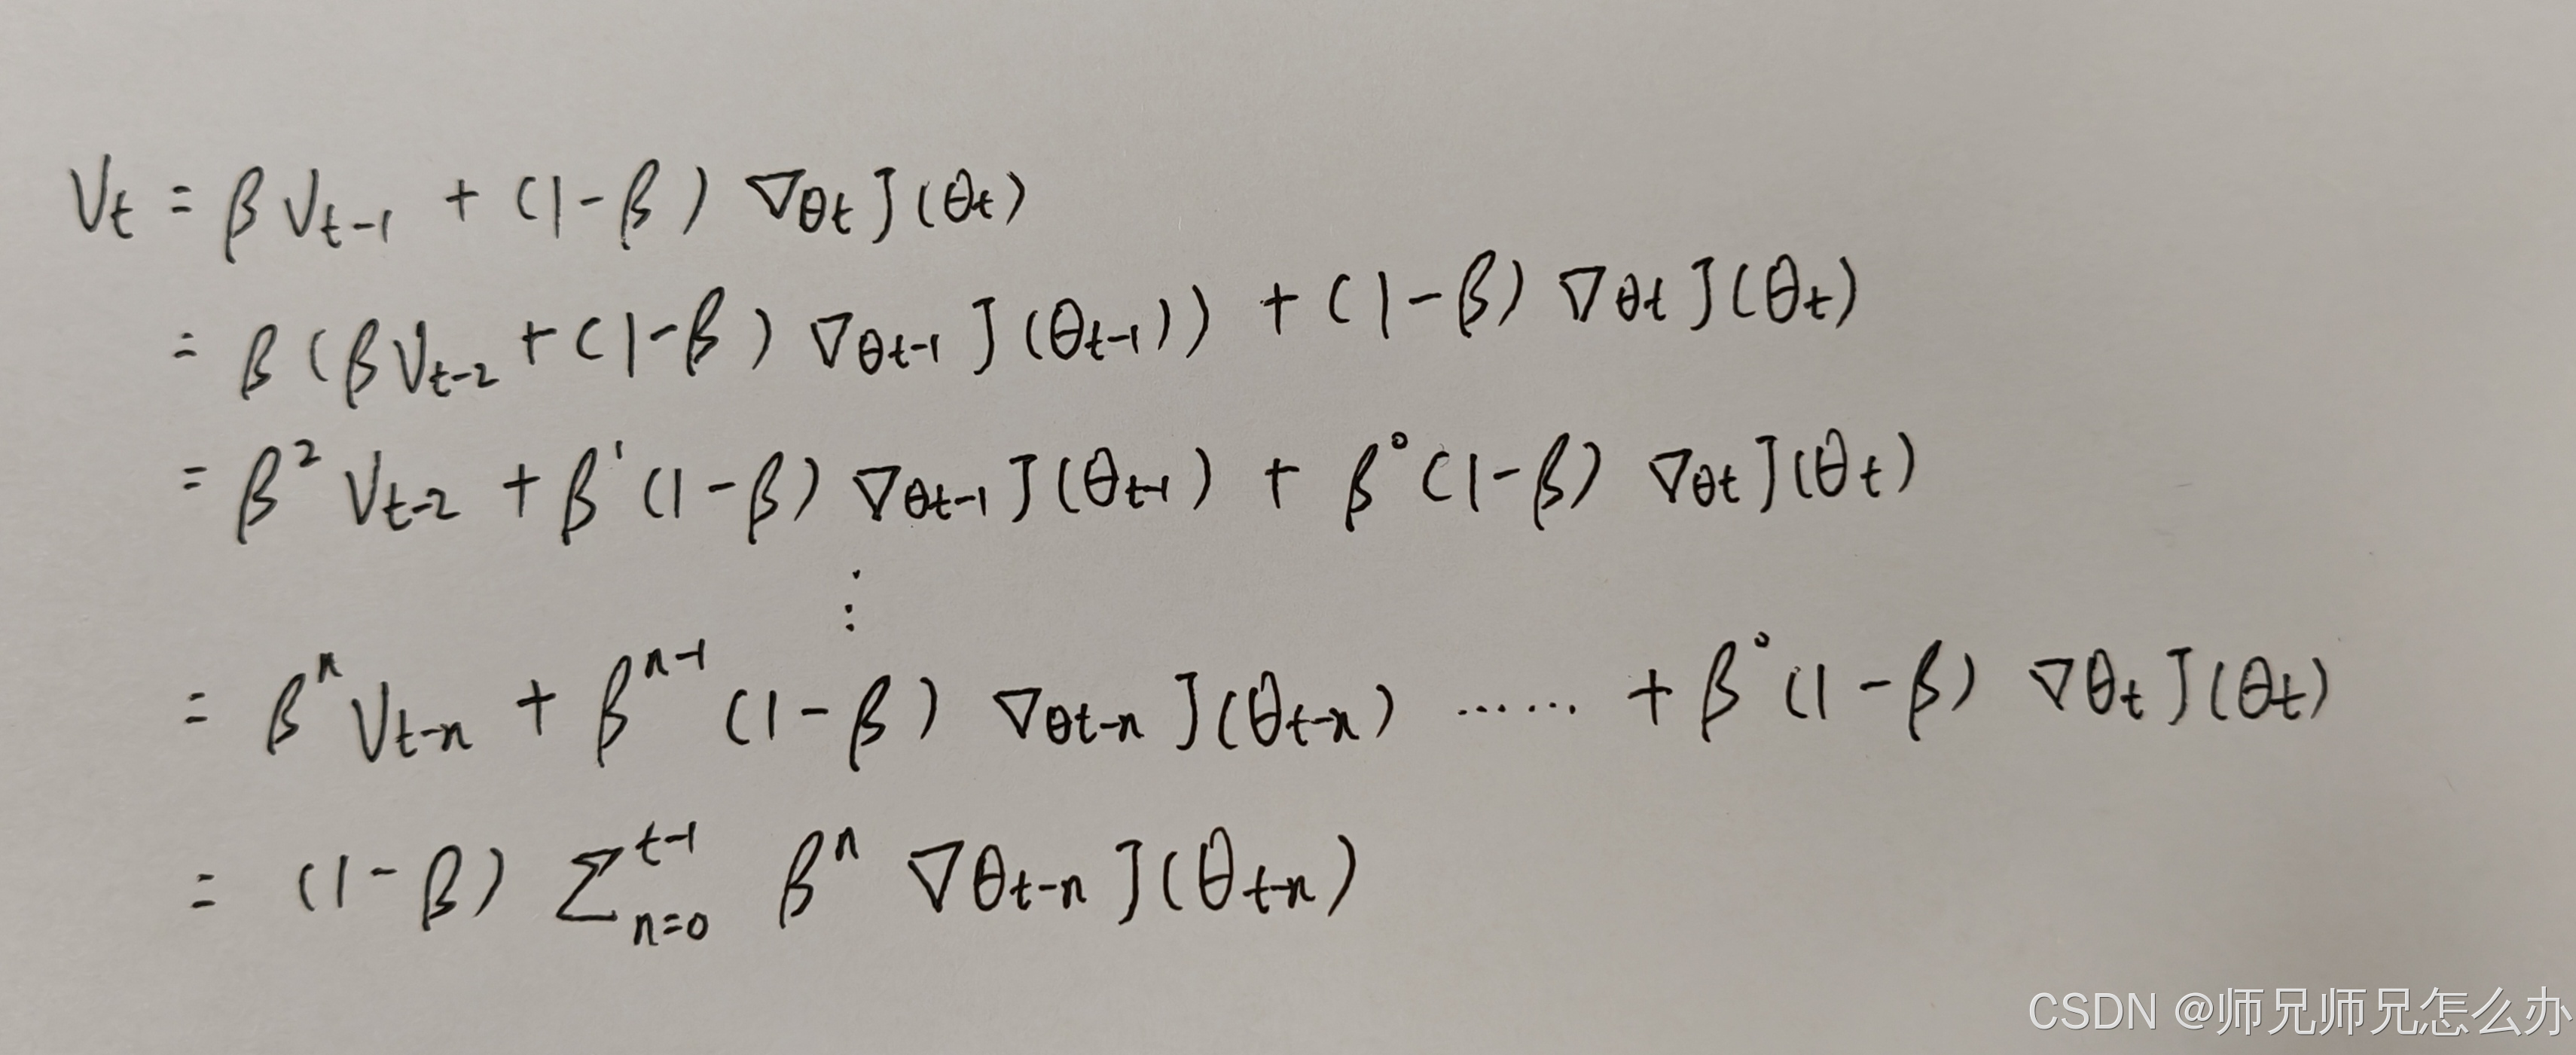 V_t = β V_{t-1} + (1-β) ∇_{θt} J(θ_t)
= β(β V_{t-2} + (1-β) ∇_{θt-1} J(θ_{t-1})) + (1-β) ∇_{θt} J(θ_t)
= β² V_{t-2} + β¹(1-β) ∇_{θt-1} J(θ_{t-1}) + β⁰(1-β) ∇_{θt} J(θ_t)
⋮
= βⁿ V_{t-n} + β^{n-1}(1-β) ∇_{θt-n} J(θ_{t-n}) ...... + β⁰(1-β) ∇θ_t J(θ_t)
= (1-β) Σ_{n=0}^{t-1} βⁿ ∇θ_{t-n} J(θ_{t-n})
CSDN @师兄师兄怎么办